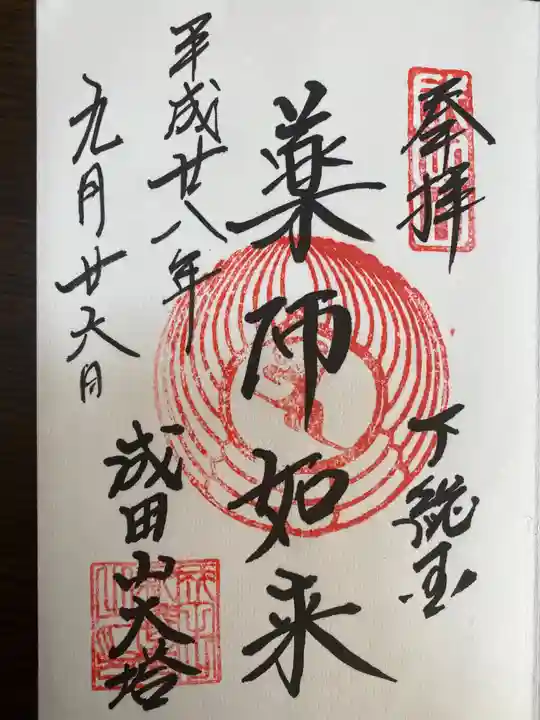 奉拝
下総国
薬師如来
平成廿八年
九月廿六日
成田山大塔